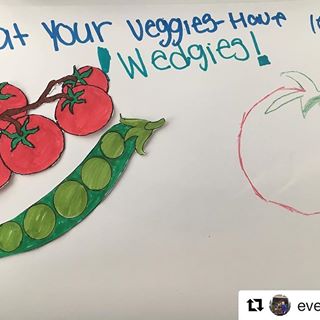 at Your Veggies-Have
Wedgies!
eve